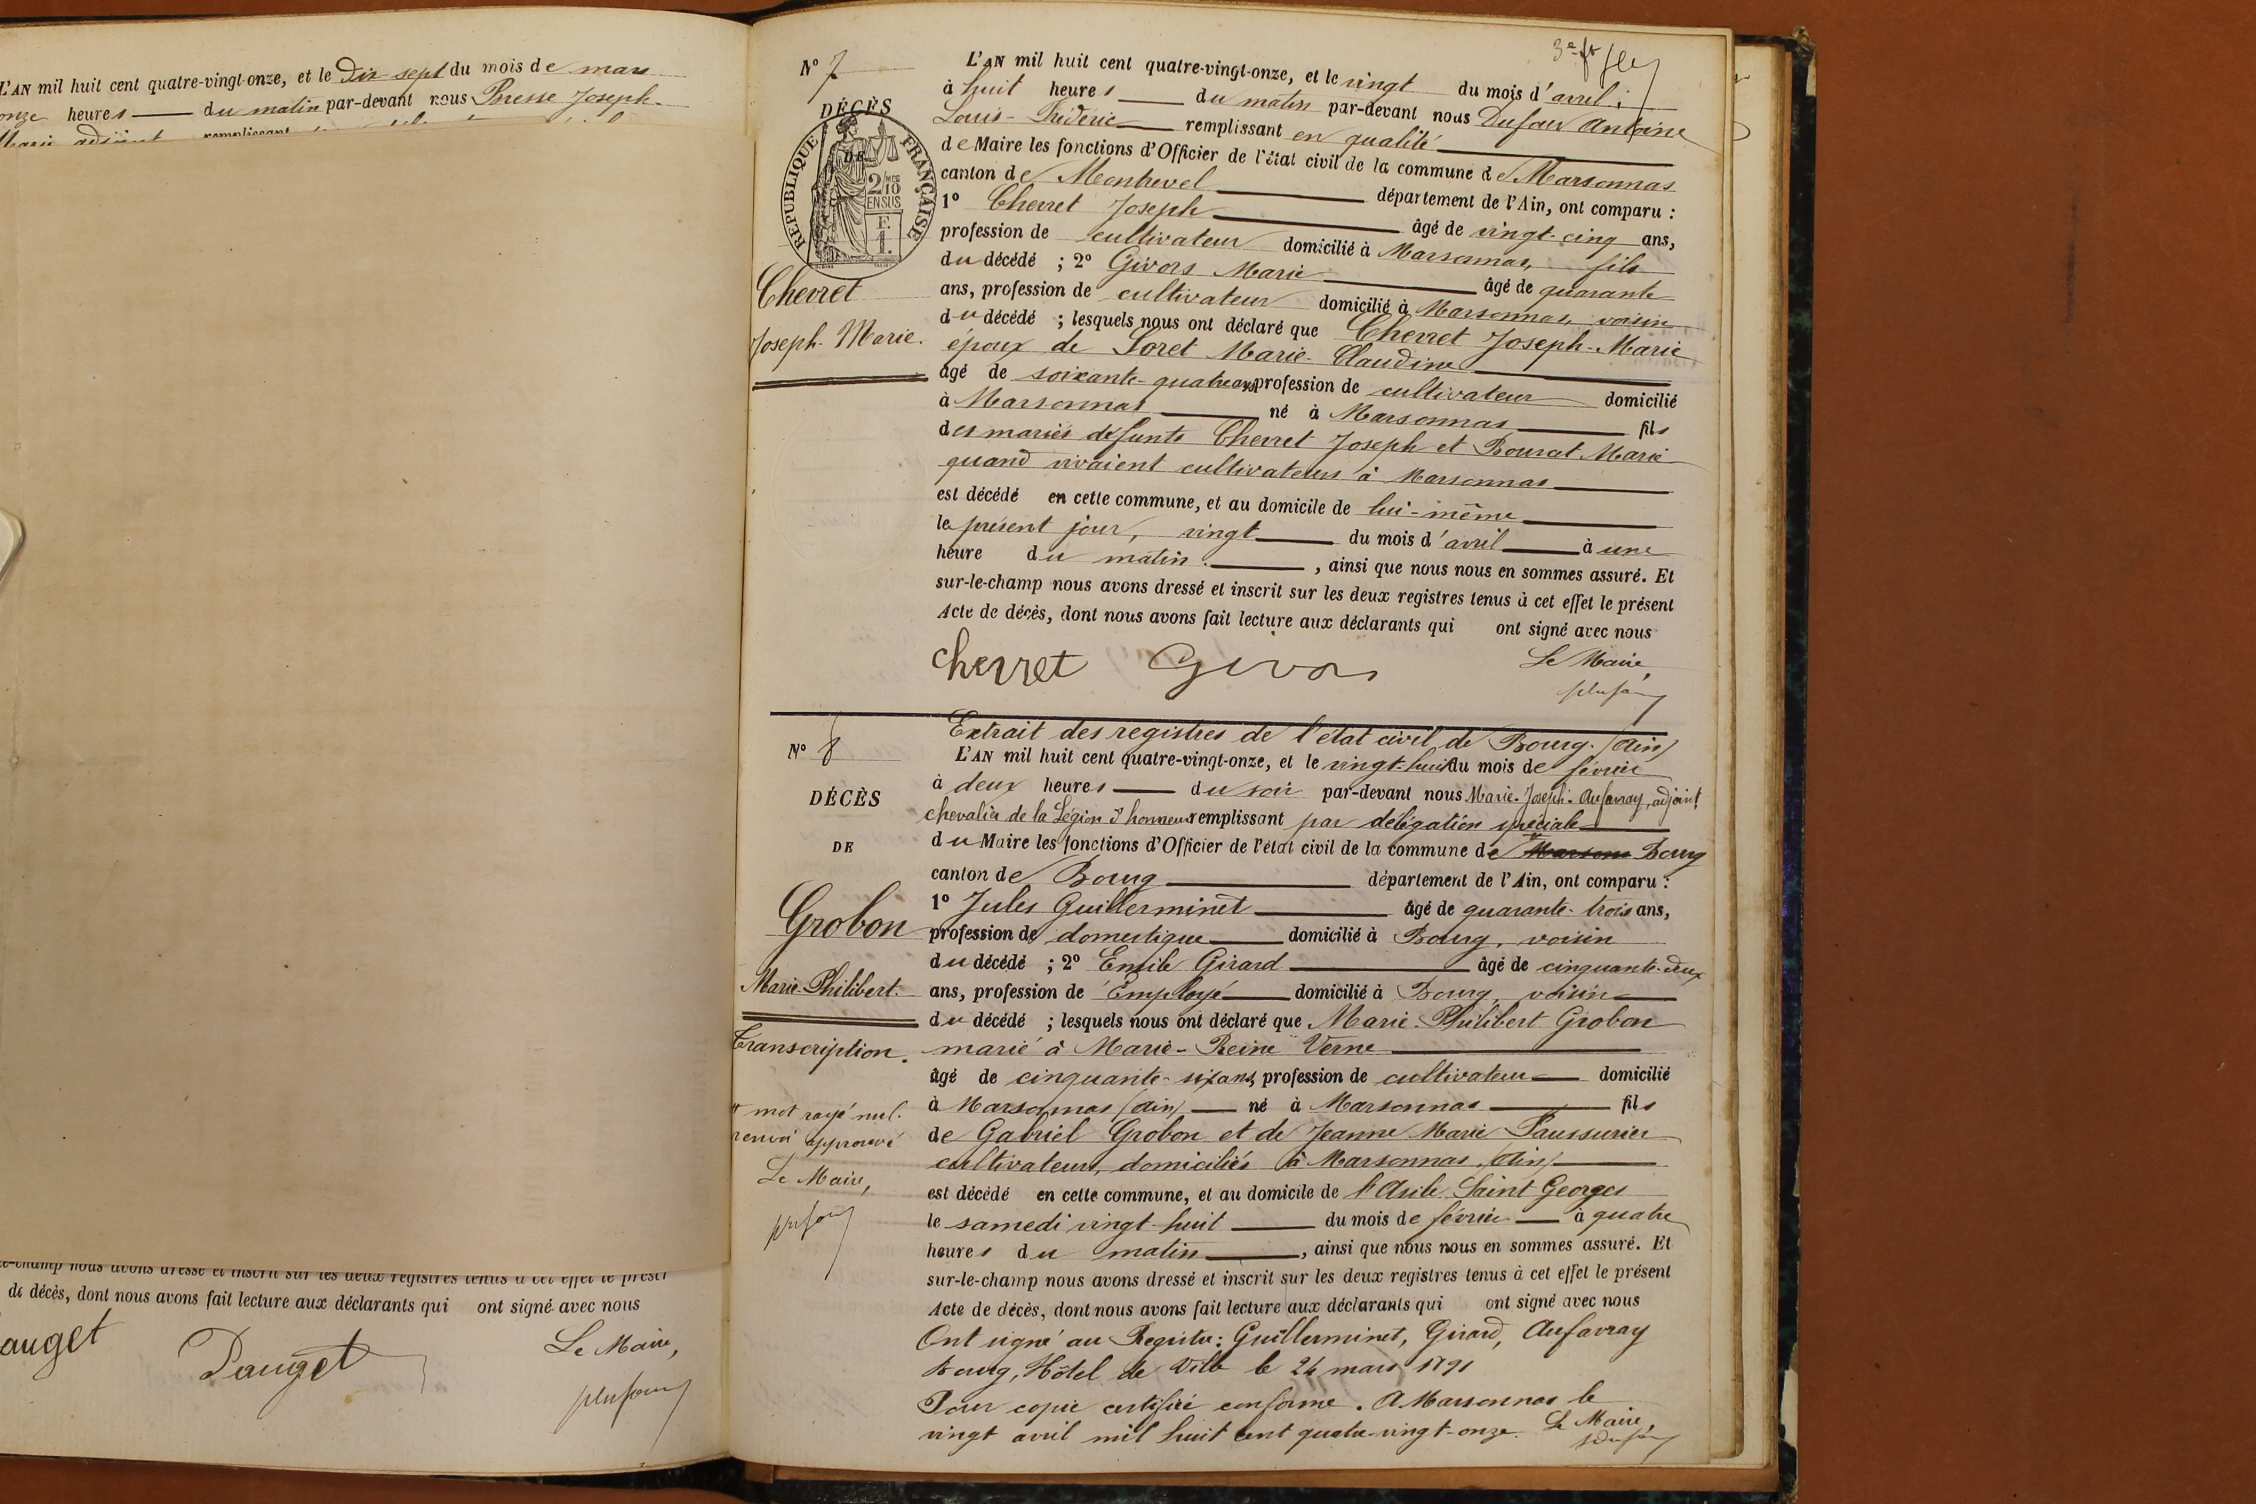 L'AN mil huit cent quatre-vingt-onze, et le Dix sept du mois de mars
onze heures du matin par-devant nous Presse Joseph-
Marie adjoint remplissant
sur-le-champ nous avons dressé et inscrit sur les deux registres tenus à cet effet le présent
de décès, dont nous avons fait lecture aux déclarants qui ont signé avec nous
auget Pauget Le Maire,
3e ft
N° 7
DÉCÈS
DE
RÉPUBLIQUE FRANÇAISE
2/10 EN SUS
F. 1.
Chevret
Joseph-Marie.
L'AN mil huit cent quatre-vingt-onze, et le vingt du mois d'avril
à huit heures du matin par-devant nous Dufour Antoine
Louis-Frédéric remplissant en qualité
de Maire les fonctions d'Officier de l'état civil de la commune de Marsonnas
canton de Montrevel département de l'Ain, ont comparu :
1° Chevret Joseph âgé de vingt-cinq ans,
profession de cultivateur domicilié à Marsonnas, fils
du décédé ; 2° Givors Marie âgé de quarante
ans, profession de cultivateur domicilié à Marsonnas, voisin
du décédé ; lesquels nous ont déclaré que Chevret Joseph-Marie
époux de Loret Marie-Claudine
âgé de soixante-quatre ans profession de cultivateur domicilié
à Marsonnas né à Marsonnas fils
des mariés défunts Chevret Joseph et Bourcat Marie
quand vivaient cultivateurs à Marsonnas
est décédé en cette commune, et au domicile de lui-même
le présent jour, vingt du mois d'avril à une
heure du matin, ainsi que nous nous en sommes assuré. Et
sur-le-champ nous avons dressé et inscrit sur les deux registres tenus à cet effet le présent
Acte de décès, dont nous avons fait lecture aux déclarants qui ont signé avec nous
Chevret Givors Le Maire
Extrait des registres de l'état civil de Bourg. (Ain)
N° 8
DÉCÈS
DE
Grobon
Marie-Philibert.
Transcription.
mot rayé nul.
renvoi approuvé
Le Maire,
L'AN mil huit cent quatre-vingt-onze, et le vingt-huit du mois de février
à deux heures du soir par-devant nous Marie-Joseph-Aufavray, adjoint
chevalier de la Légion d'honneur remplissant par délégation spéciale
du Maire les fonctions d'Officier de l'état civil de la commune de Bourg
canton de Bourg département de l'Ain, ont comparu :
1° Jules Guillerminet âgé de quarante-trois ans,
profession de domestique domicilié à Bourg, voisin
du décédé ; 2° Emile Girard âgé de cinquante-deux
ans, profession de Employé domicilié à Bourg, voisin
du décédé ; lesquels nous ont déclaré que Marie-Philibert Grobon
marié à Marie-Reine Verne
âgé de cinquante-six ans, profession de cultivateur domicilié
à Marsonnas (Ain) né à Marsonnas fils
de Gabriel Grobon et de Jeanne Marie Paussurier
cultivateurs, domiciliés à Marsonnas (Ain)
est décédé en cette commune, et au domicile de l'Asile Saint Georges
le samedi vingt-huit du mois de février à quatre
heures du matin, ainsi que nous nous en sommes assuré. Et
sur-le-champ nous avons dressé et inscrit sur les deux registres tenus à cet effet le présent
Acte de décès, dont nous avons fait lecture aux déclarants qui ont signé avec nous
Ont signé au Registre : Guillerminet, Girard, Aufavray
Bourg, Hôtel de Ville le 24 mars 1891
Pour copie certifiée conforme. A Marsonnas le
vingt avril mil huit cent quatre-vingt-onze. Le Maire,